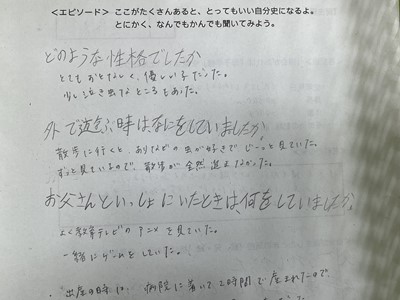 <エピソード> ここがたくさんあると、とってもいい自分史になるよ。
とにかく、なんでもかんでも聞いてみよう。
どのような性格でしたか
とてもおとなしく、優しい子だった。
少し泣き虫なところもあった。
外で遊ぶ時はなにをしていましたか?
散歩に行くと、ありなどの虫が好きでじーっと見ていた。
ずっと見ているので、散歩が全然進まなかった。
お父さんといっしょにいたときは、何をしていましたか?
よく教育テレビのアニメを見ていた。
一緒にゲームをしていた。
出産の時は、病院に着いて2時間で産まれたので